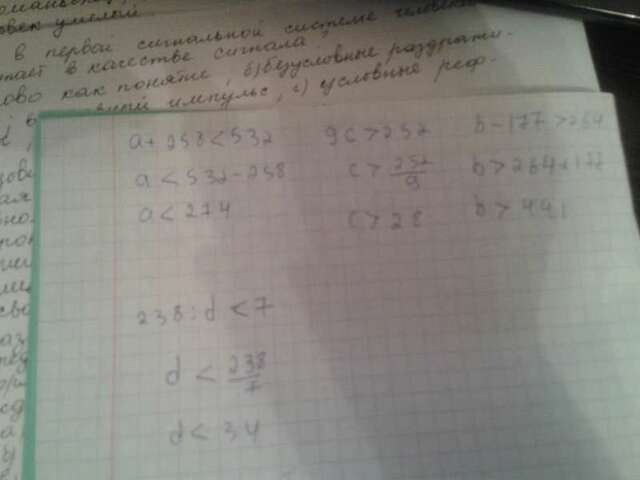 в первой сигнальной системе человека
в качестве сигнала?
как понятие, б) безусловные раздражи-
импульс, г) условные реф-
a + 258 < 532
a < 532 - 258
a < 274
9c > 252
c > 252/9
c > 28
b - 177 > 264
b > 264 + 177
b > 441
238 : d < 7
d < 238/7
d < 34